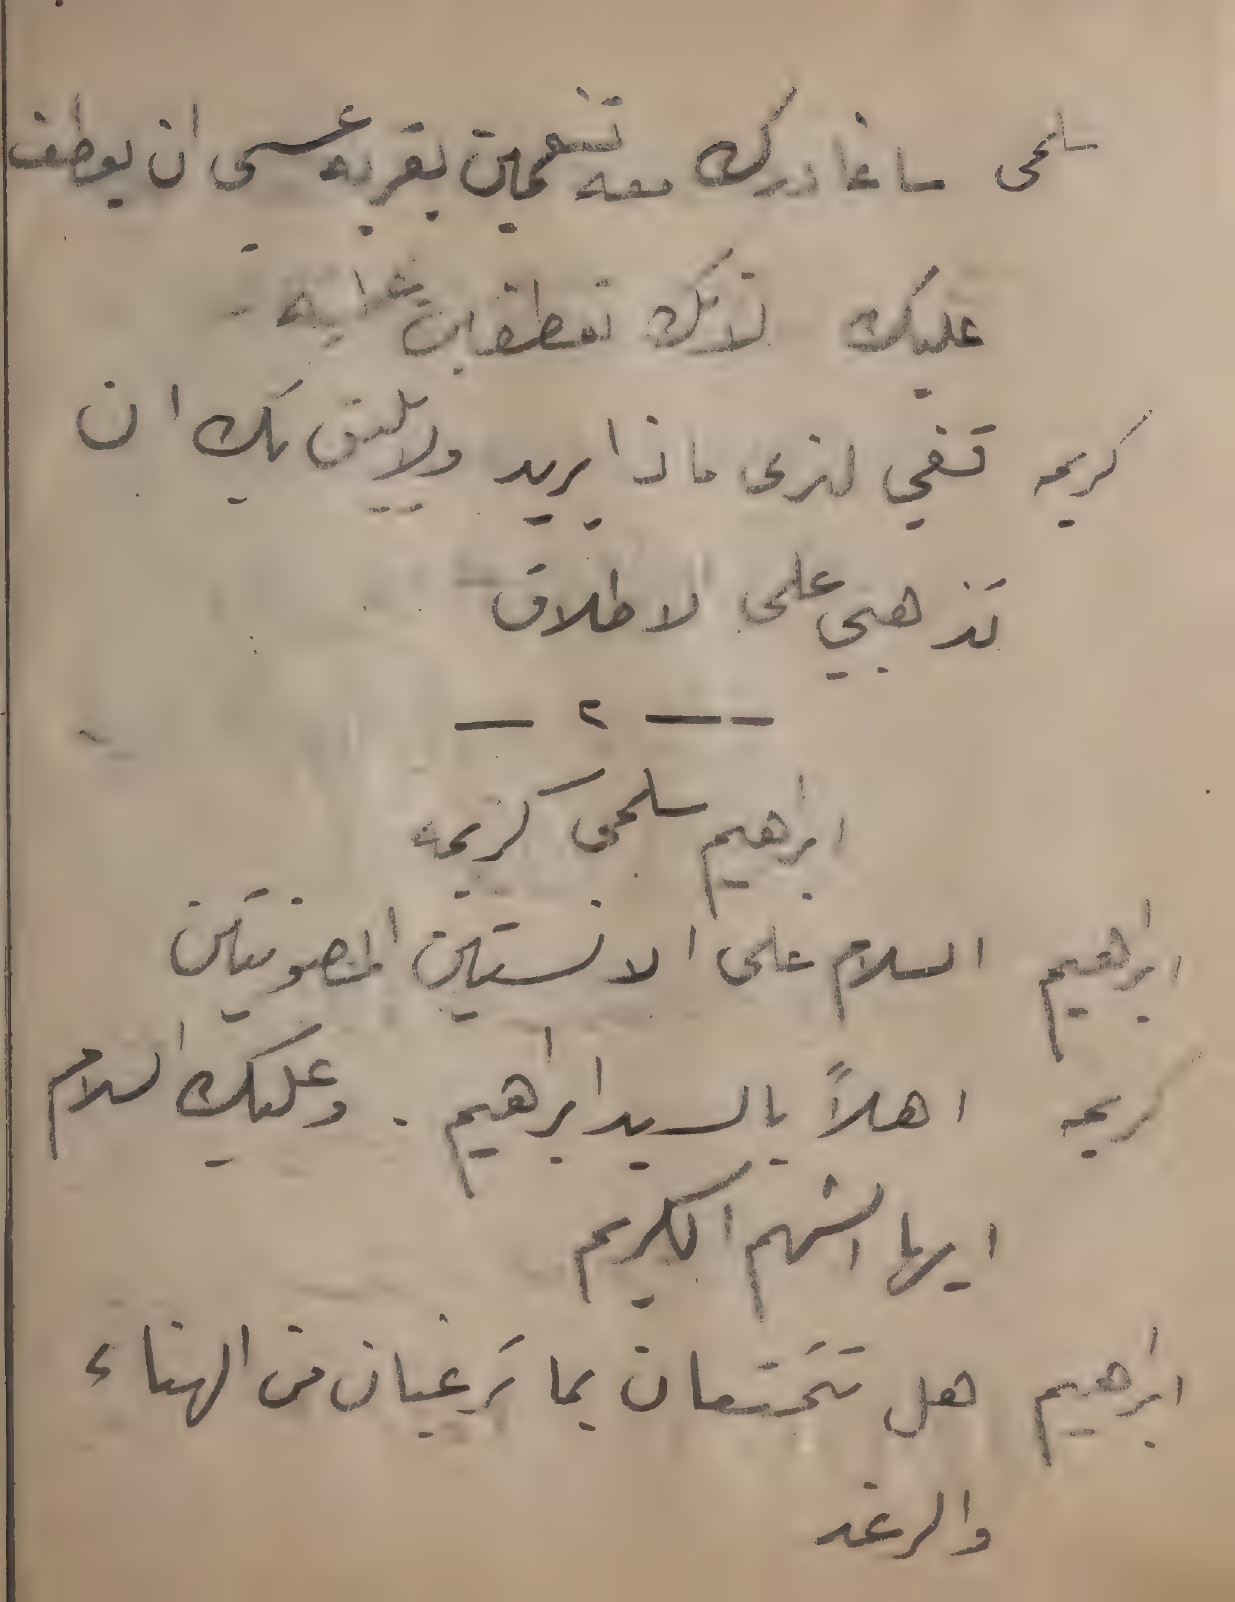 سلمى ساغادرك معه تنعمين بقربه عسى ان يعطف
عليك لانك تعطفين عليه
كريمه قفي لنرى ماذا يريد ولا يليق بك ان
تذهبي على الاطلاق
— ٢ —
ابراهيم سلمى كريمه
ابراهيم السلام على الانستين المصونتين
كريمه اهلاً بالسيد ابراهيم . وعليك السلام
ايها الشهم الكريم
ابراهيم هل تتمتعان بما ترغبان من الهناء
والرغد